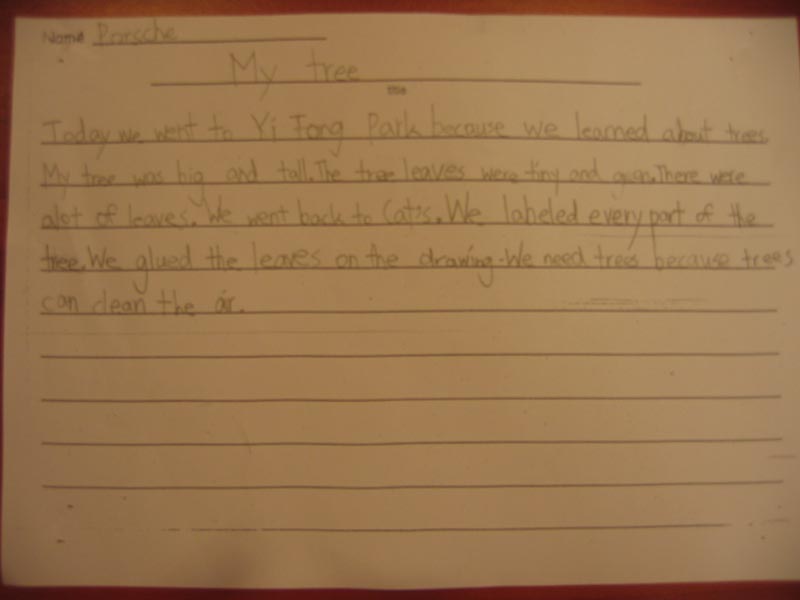 Name Porsche
My tree
title
Today we went to Yi Tong Park because we learned about trees.
My tree was big and tall. The tree leaves were tiny and green. There were
alot of leaves. We went back to Cat's. We labeled every part of the
tree. We glued the leaves on the drawing. We need trees because trees
can clean the air.